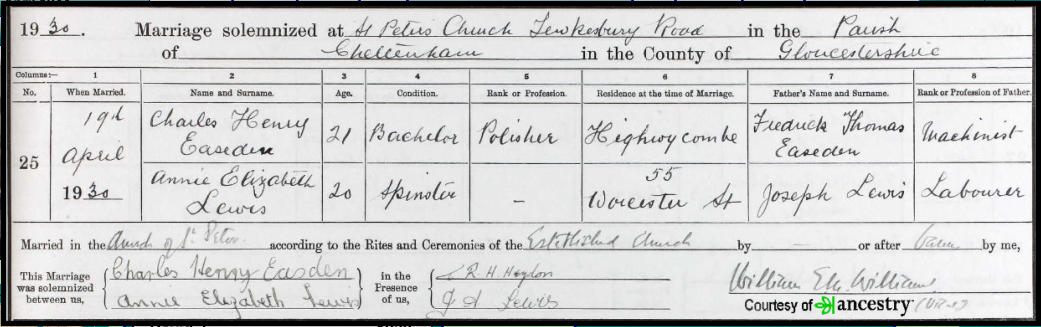 1930. Marriage solemnized at St Peters Church Tewkesbury Road in the Parish
of Cheltenham in the County of Gloucestershire
Columns:— 1 2 3 4 5 6 7 8
No. When Married. Name and Surname. Age. Condition. Rank or Profession. Residence at the time of Marriage. Father's Name and Surname. Rank or Profession of Father.
25 19th April 1930 Charles Henry Easeden 21 Bachelor Polisher Highwycombe Fredrick Thomas Easeden Machinist
Annie Elizabeth Lewis 20 Spinster – 55 Worcester St Joseph Lewis Labourer
Married in the Church of St. Peter according to the Rites and Ceremonies of the Established Church by — or after by me,
This Marriage was solemnized between us, Charles Henry Easden in the Presence of us, R. H. William
Annie Elizabeth Lewis Lewis
Courtesy of ancestry